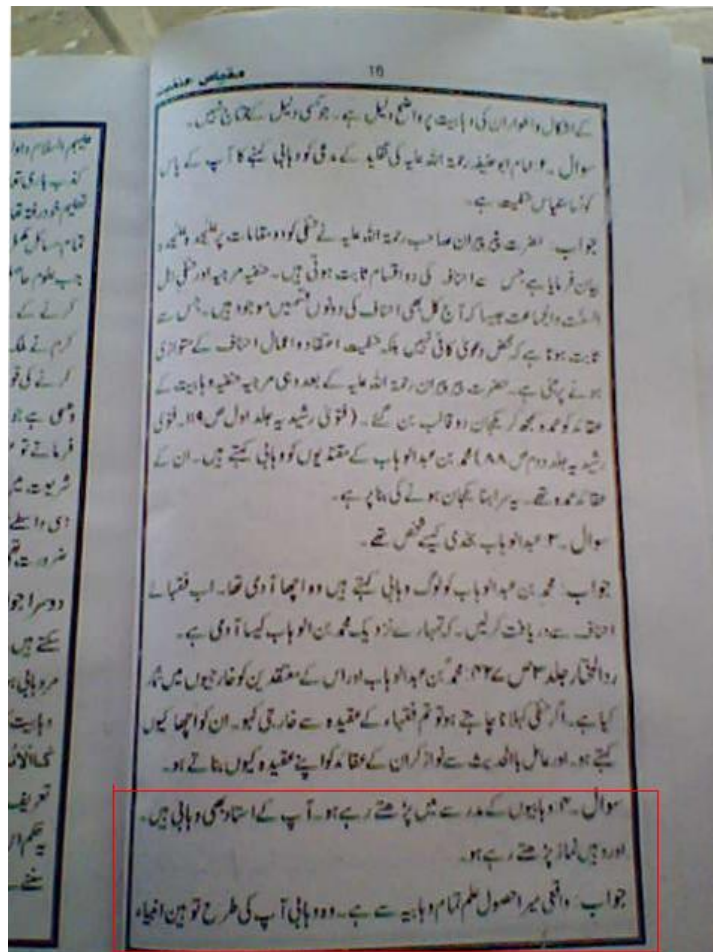 16 مقیاس حنفیت
کے اشکال واطوار ان کی وہابیت پر واضح دلیل ہے۔ جو کسی دلیل کے محتاج نہیں۔
سوال ۔۲: امام ابو حنیفہ رحمۃ اللہ علیہ کی تقلید کے مدعی کو وہابی کہنے کا آپ کے پاس
کونسا مقیاس حنفیت ہے۔
جواب: حضرت پیر پیران صاحب رحمۃ اللہ علیہ نے حنفی کو دو مقامات پر علیحدہ علیحدہ
بیان فرمایا ہے جس سے احناف کی دو اقسام ثابت ہوتی ہیں۔ حنفیہ مرجیہ اور حنفی اہل
السنت والجماعت جیسا کہ آج کل بھی احناف کی دونوں قسمیں موجود ہیں۔ جس سے
ثابت ہوتا ہے کہ محض دعویٰ کافی نہیں بلکہ حنفیت اعتقاد و اعمال احناف کے متوازی
ہونے پر مبنی ہے۔ حضرت پیر پیران رحمۃ اللہ علیہ کے بعد وہی مرجیہ حنفیہ وہابیت کے
عقائد کو عمدہ سمجھ کر یکجان دو قالب بن گئے۔ (فتویٰ رشیدیہ جلد اول ص ۱۱۹، فتویٰ
رشیدیہ جلد دوم ص ۸۸) محمد بن عبدالوہاب کے مقتدیوں کو وہابی کہتے ہیں۔ ان کے
عقائد عمدہ تھے۔ یہ سراہنا یکجان ہونے کی بنا پر ہے۔
سوال ۔۳: عبدالوہاب نجدی کیسے شخص تھے۔
جواب: محمد بن عبدالوہاب کو لوگ وہابی کہتے ہیں وہ اچھا آدمی تھا۔ اب فقہائے
احناف سے دریافت کرلیں۔ کہ تمہارے نزدیک محمد بن الوہاب کیسا آدمی ہے۔
ردالمختار جلد ۳ ص ۴۲۷: محمد بن عبدالوہاب اور اس کے معتقدین کو خارجیوں میں شمار
کیا ہے۔ اگر حنفی کہلانا چاہتے ہو تو تم فقہاء کے عقیدہ سے خارجی کہو۔ ان کو اچھا کیوں
کہتے ہو۔ اور عامل بالحدیث سے نواز کر ان کے عقائد کو اپنے عقیدہ کیوں بناتے ہو۔
سوال ۔۴: وہابیوں کے مدرسے میں پڑھتے رہے ہو۔ آپ کے استاد بھی وہابی ہیں۔
اور وہیں نماز پڑھتے رہے ہو۔
جواب: واقعی میرا حصول علم تمام وہابیہ سے ہے۔ وہ وہابی آپ کی طرح توہین انبیاء
علیہم السلام و اولیا
کذب باری تعا
تمام مسائل
کرنے کے
کرم نے
کرنے کی
فرماتے تو
شریعت میں
اسی واسطے
ضرورت
دوسرا جو
سکتے ہیں
وہابیت
تعریف